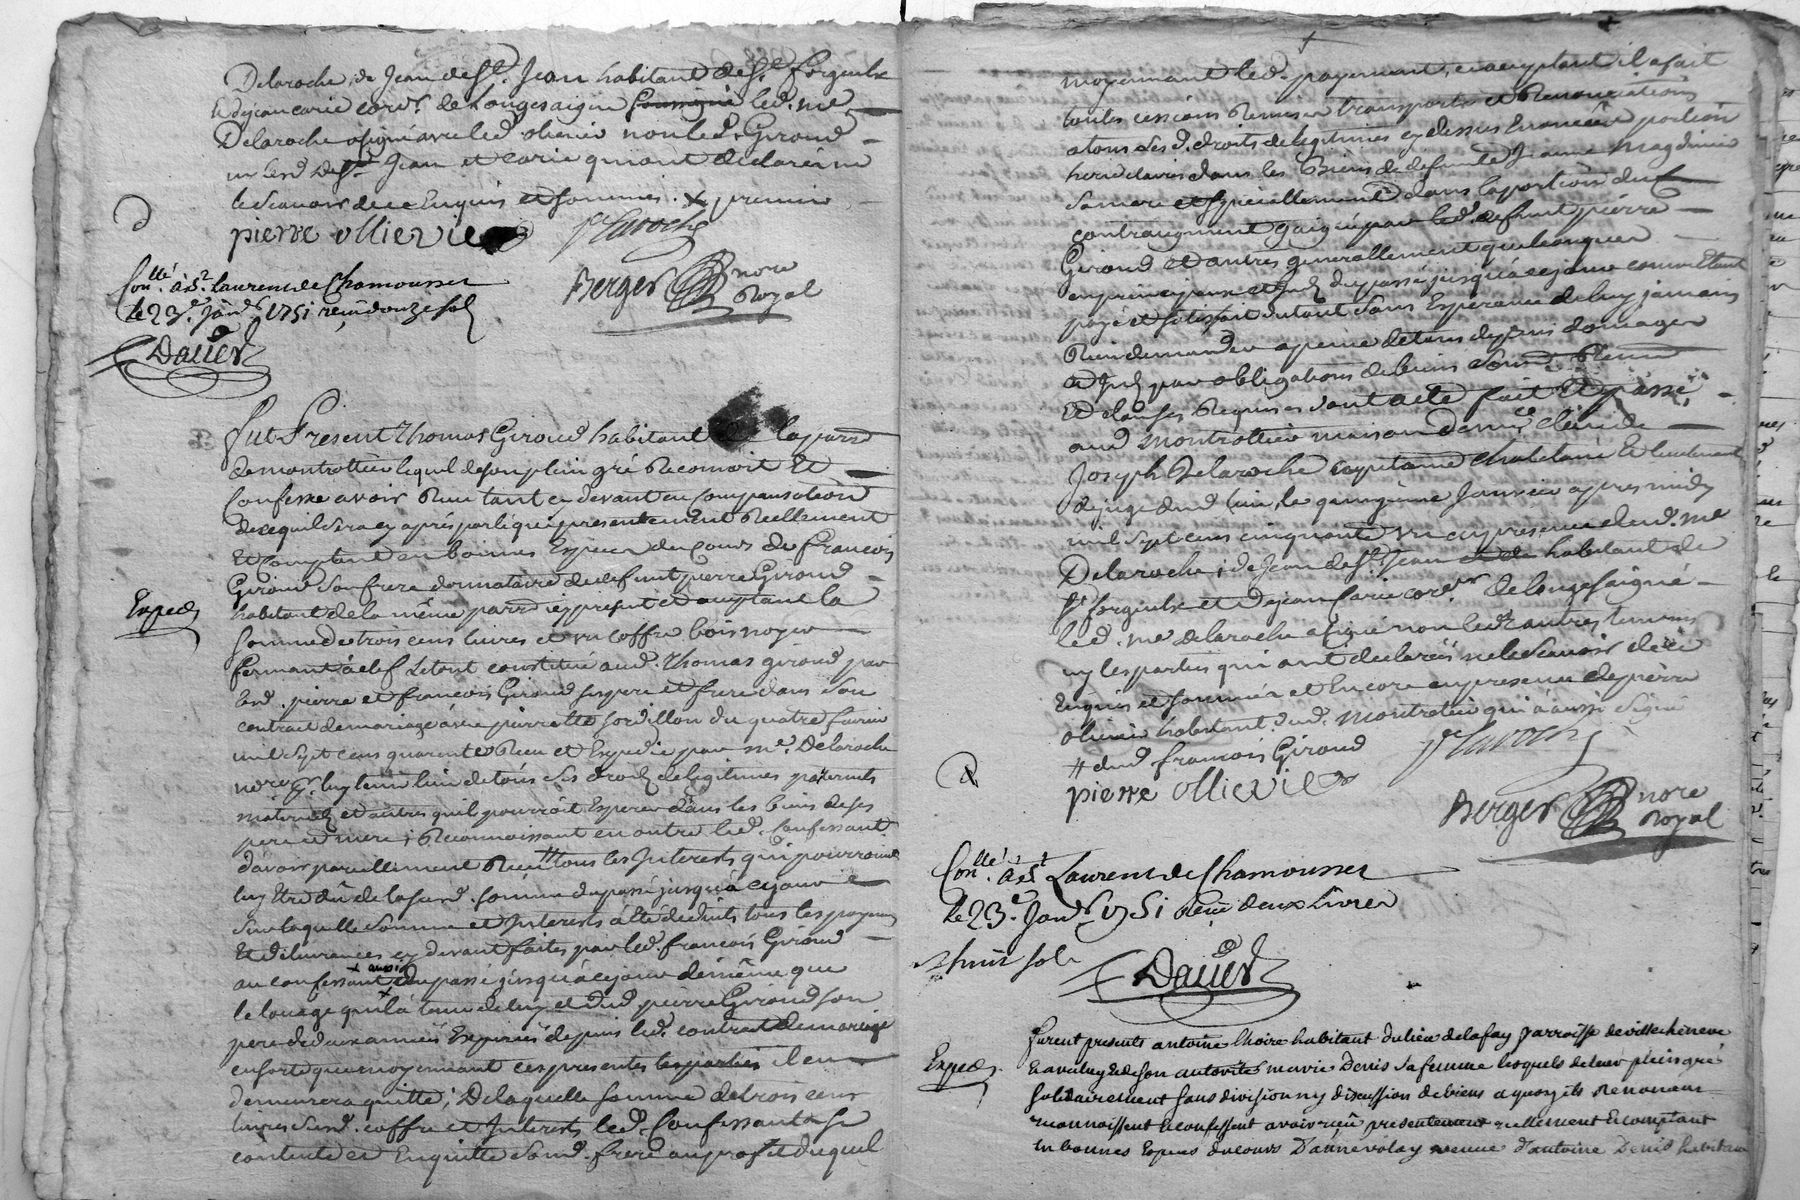 Delaroche, de Jean de St. Jean habitant de St. forgeulx
Et dejean carie cord.r de Longesaigne led. me
Delaroche a signé avec led. olievier non led. Giroud
ny led. de St. Jean et carie qui ont déclaré ne
le scavoir de ce Enquis et sommés. X premier
pierre ollievier Delaroche
Con.llé à St. Laurens de Chamousset
le 23.e Janv.r 1751 reçu douze sols
Berger nore Royal
Dauier
fut Present Thomas Giroud habitant la parr.
de montrottier lequel de son plein gré Reconnoit Et
Confesse avoir Reçu tant cy devant en Compensation
de ce quil sera cy après expliqué presentement Reellement
Et Comptant En bonnes Especes du Cours de francois
Giroud Son frere donnataire de defunt pierre Giroud
habitant de la même parr. icy present et acceptant la
Expedié
Somme de trois cens livres et un Coffre bois noyer
fermant à clef Le tout constitué aud. Thomas giroud par
led. pierre et francois Giroud ses pere et frere dans Son
contrat de mariage avec pierrette sordillon du quatre fevrier
mil Sept cens quarente Reçu et Expedié par me. Delaroche
nore luy tenir lieu de tous Ses droits de legitimes paternels
maternels et autres quil pourroit Esperer dans les biens de ses
pere et mere; Reconnoissant en outre led. Confessant
d'avoir pareillement Reçu tous les Interests qui pourroient
luy Etre dû de lasusd. somme du passé jusqu'à ce jour
Sur laquelle Somme et Interests à été déduits tous les payemens
Et délivrances cy devant faites par led. francois Giroud
au confessant aussi du passé jusqu'à ce jour de même que
le louage quil à tenu de luy et dud. pierre Giroud son
pere de deux années Expirées depuis led. contrat de mariage
ensorte que moyennant ces presentes les parties il en
demeurera quitte; De laquelle somme de trois cens
livres Susd. coffre et Interests led. Confessant Se
contente et En quitte Sond. frere au profit duquel
moyennant led. payement, et acceptant il a fait
toutes cessions Remises transports et Renonciations
à tous Ses d. droits de legitimes cy dessus Enoncés portion
hereditaires dans les Biens de defunte Jeanne Magdinier
Sa mere et specialement dans la portion du
contraugment gaigné par led. defunt pierre
Giroud Et autres generallement quelconques
en principaux et Ints. du passé jusqu'à ce jour comme Etant
payé et satisfait du tout Sans Esperance de luy jamais
Rien demander a peine de tous depens domages
et Ints. par obligations de biens Soumd. Renond.
Et clauses Requises dont acte fait Et passé
aud. Montrottier maison de me. claude
Joseph Delaroche capitaine chatelain Et lieutenant
de juge dud. lieu, le quinzieme Janvier apres midy
mil Sept cens cinquante un en presence dud. me
Delaroche; de Jean de St. Jean habitant de
St. forgeulx et de jean Carie cord.er de Longesaigne
led. me delaroche a signé non led. autres temoins
ny les parties qui ont déclarés ne le Scavoir de ce
Enquis et sommés et Encore en presence de pierre
olievier habitant dud. Montrottier qui à aussi signé
# dud. francois Giroud
pierre ollievier Delaroche
Berger nore Royal
Con.llé à St. Laurens de Chamousset
le 23.e Janv.r 1751 Reçu deux Livres
huit sols
Dauier
Expedié
furent presents antoine Choire habitant du lieu de la fay parroisse de villecheneve
Et aveluy de son autorité marie Denis sa femme lesquels de leur plein gré
solidairement sans division ny discussion de biens a quoy ils Renoncent
reconnoissent Et confessent avoir reçu presentement reellement Et comptant
en bonnes Especes du cours D'anne volay veuve d'antoine Denis habitante